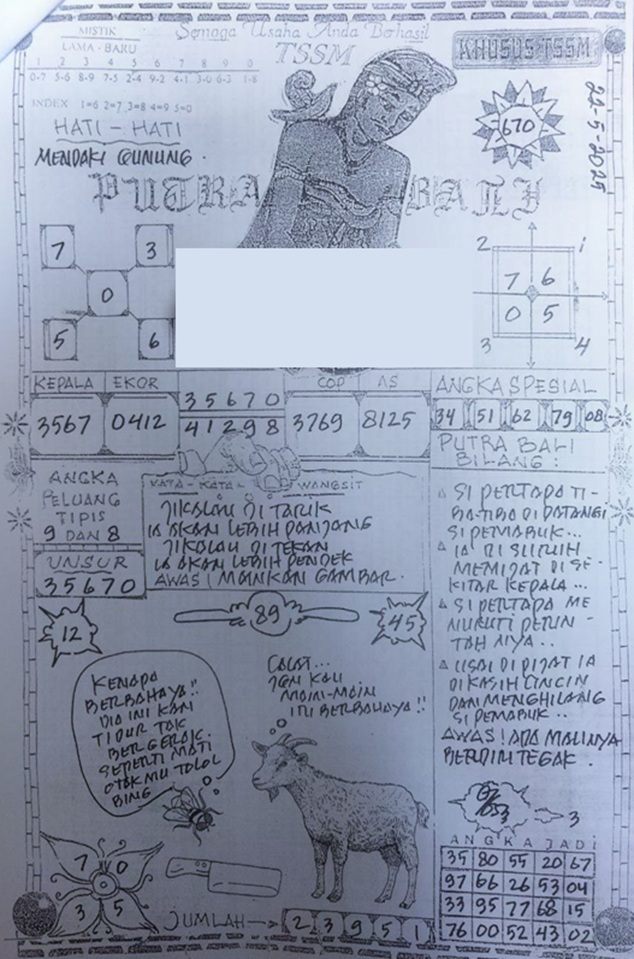 MISTIK
LAMA - BARU
1 2 3 4 5 6 7 8 9 0
0-7 5-6 8-9 7-5 2-4 9-2 4-1 3-0 6-3 1-8
INDEX 1=6 2=7 3=8 4=9 5=0
Semoga Usaha Anda Berhasil
TSSM
KHUSUS TSSM
22-5-2025
670
HATI - HATI
MENDAKI GUNUNG.
PUTRA BALI
7 3
0
5 6
2 1
7 6
0 5
3 4
KEPALA EKOR
3567 0412
35670
41298
COP AS
3769 8125
ANGKA SPESIAL
34 51 62 79 08
ANGKA
PELUANG
TIPIS
9 DAN 8
UNSUR
35670
KATA - KATA WANGSIT
JIKALAU DI TARIK
IA AKAN LEBIH PANJANG
JIKALAU DI TEKAN
IA AKAN LEBIH PENDEK
AWAS! MAINKAN GAMBAR.
PUTRA BALI
BILANG :
SI PERTAPA TI-
BA-TIBA DI DATANGI
SI PEMABUK...
IA DI SURUH
MEMIJAT DI SE-
KITAR KEPALA...
SI PERTAPA ME
NURUTI PERIN-
TAH NYA..
USAI DI PIJAT IA
DI KASIH CINCIN
DAN MENGHILANG
SI PEMABUK..
AWAS! ADA MALINYA
BERDIRI TEGAK.
12
89
45
KENAPA
BERBAHAYA!!
DIA INI KAN
TIDUR TAK
BERGERAK.
SEPERTI MATI
OTAK MU TOLOL
BING
JGN KAU
MAIN-MAIN
INI BERBAHAYA!!
7 0
3 5
JUMLAH
2 3 9 5 1
3
ANGKA JADI
35 80 55 20 67
97 66 26 53 04
33 95 77 68 15
76 00 52 43 02